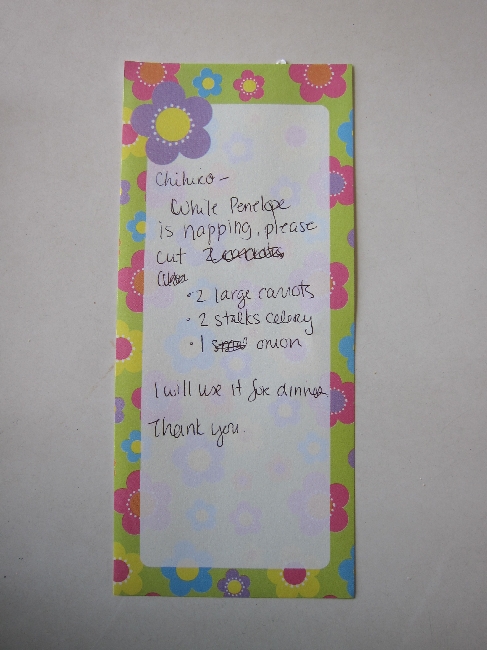 Chihiro –
While Penelope
is napping, please
cut
• 2 large carrots
• 2 stalks celery
• 1 onion
I will use it for dinner.
Thank you.